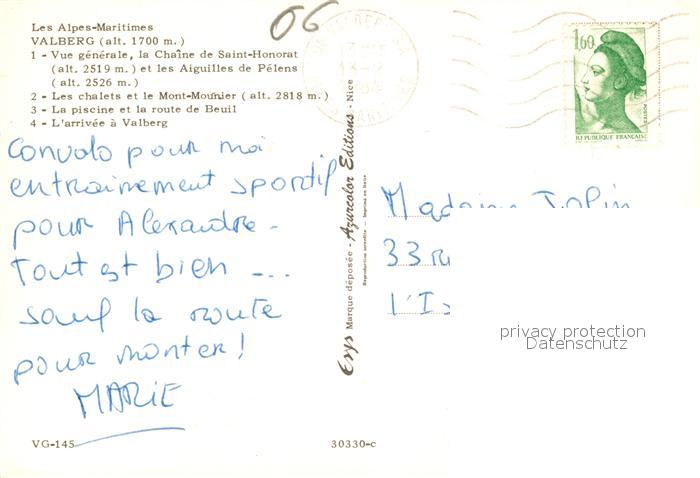 06
Les Alpes-Maritimes
VALBERG (alt. 1700 m.)
1 - Vue générale, la Chaîne de Saint-Honorat
(alt. 2519 m.) et les Aiguilles de Pélens
(alt. 2526 m.)
2 - Les chalets et le Mont-Mounier (alt. 2818 m.)
3 - La piscine et la route de Beuil
4 - L'arrivée à Valberg
Convalo pour moi
entrainement sportif
pour Alexandre -
Tout est bien ...
sauf la route
pour monter !
MARIE
VG-145
30330-c
Esys Marque déposée - Azurcolor Editions - Nice
Reproduction interdite - Imprimé en Italie
1,60
POSTES
REPUBLIQUE FRANÇAISE
Madame
33
l'Is
privacy protection
Datenschutz